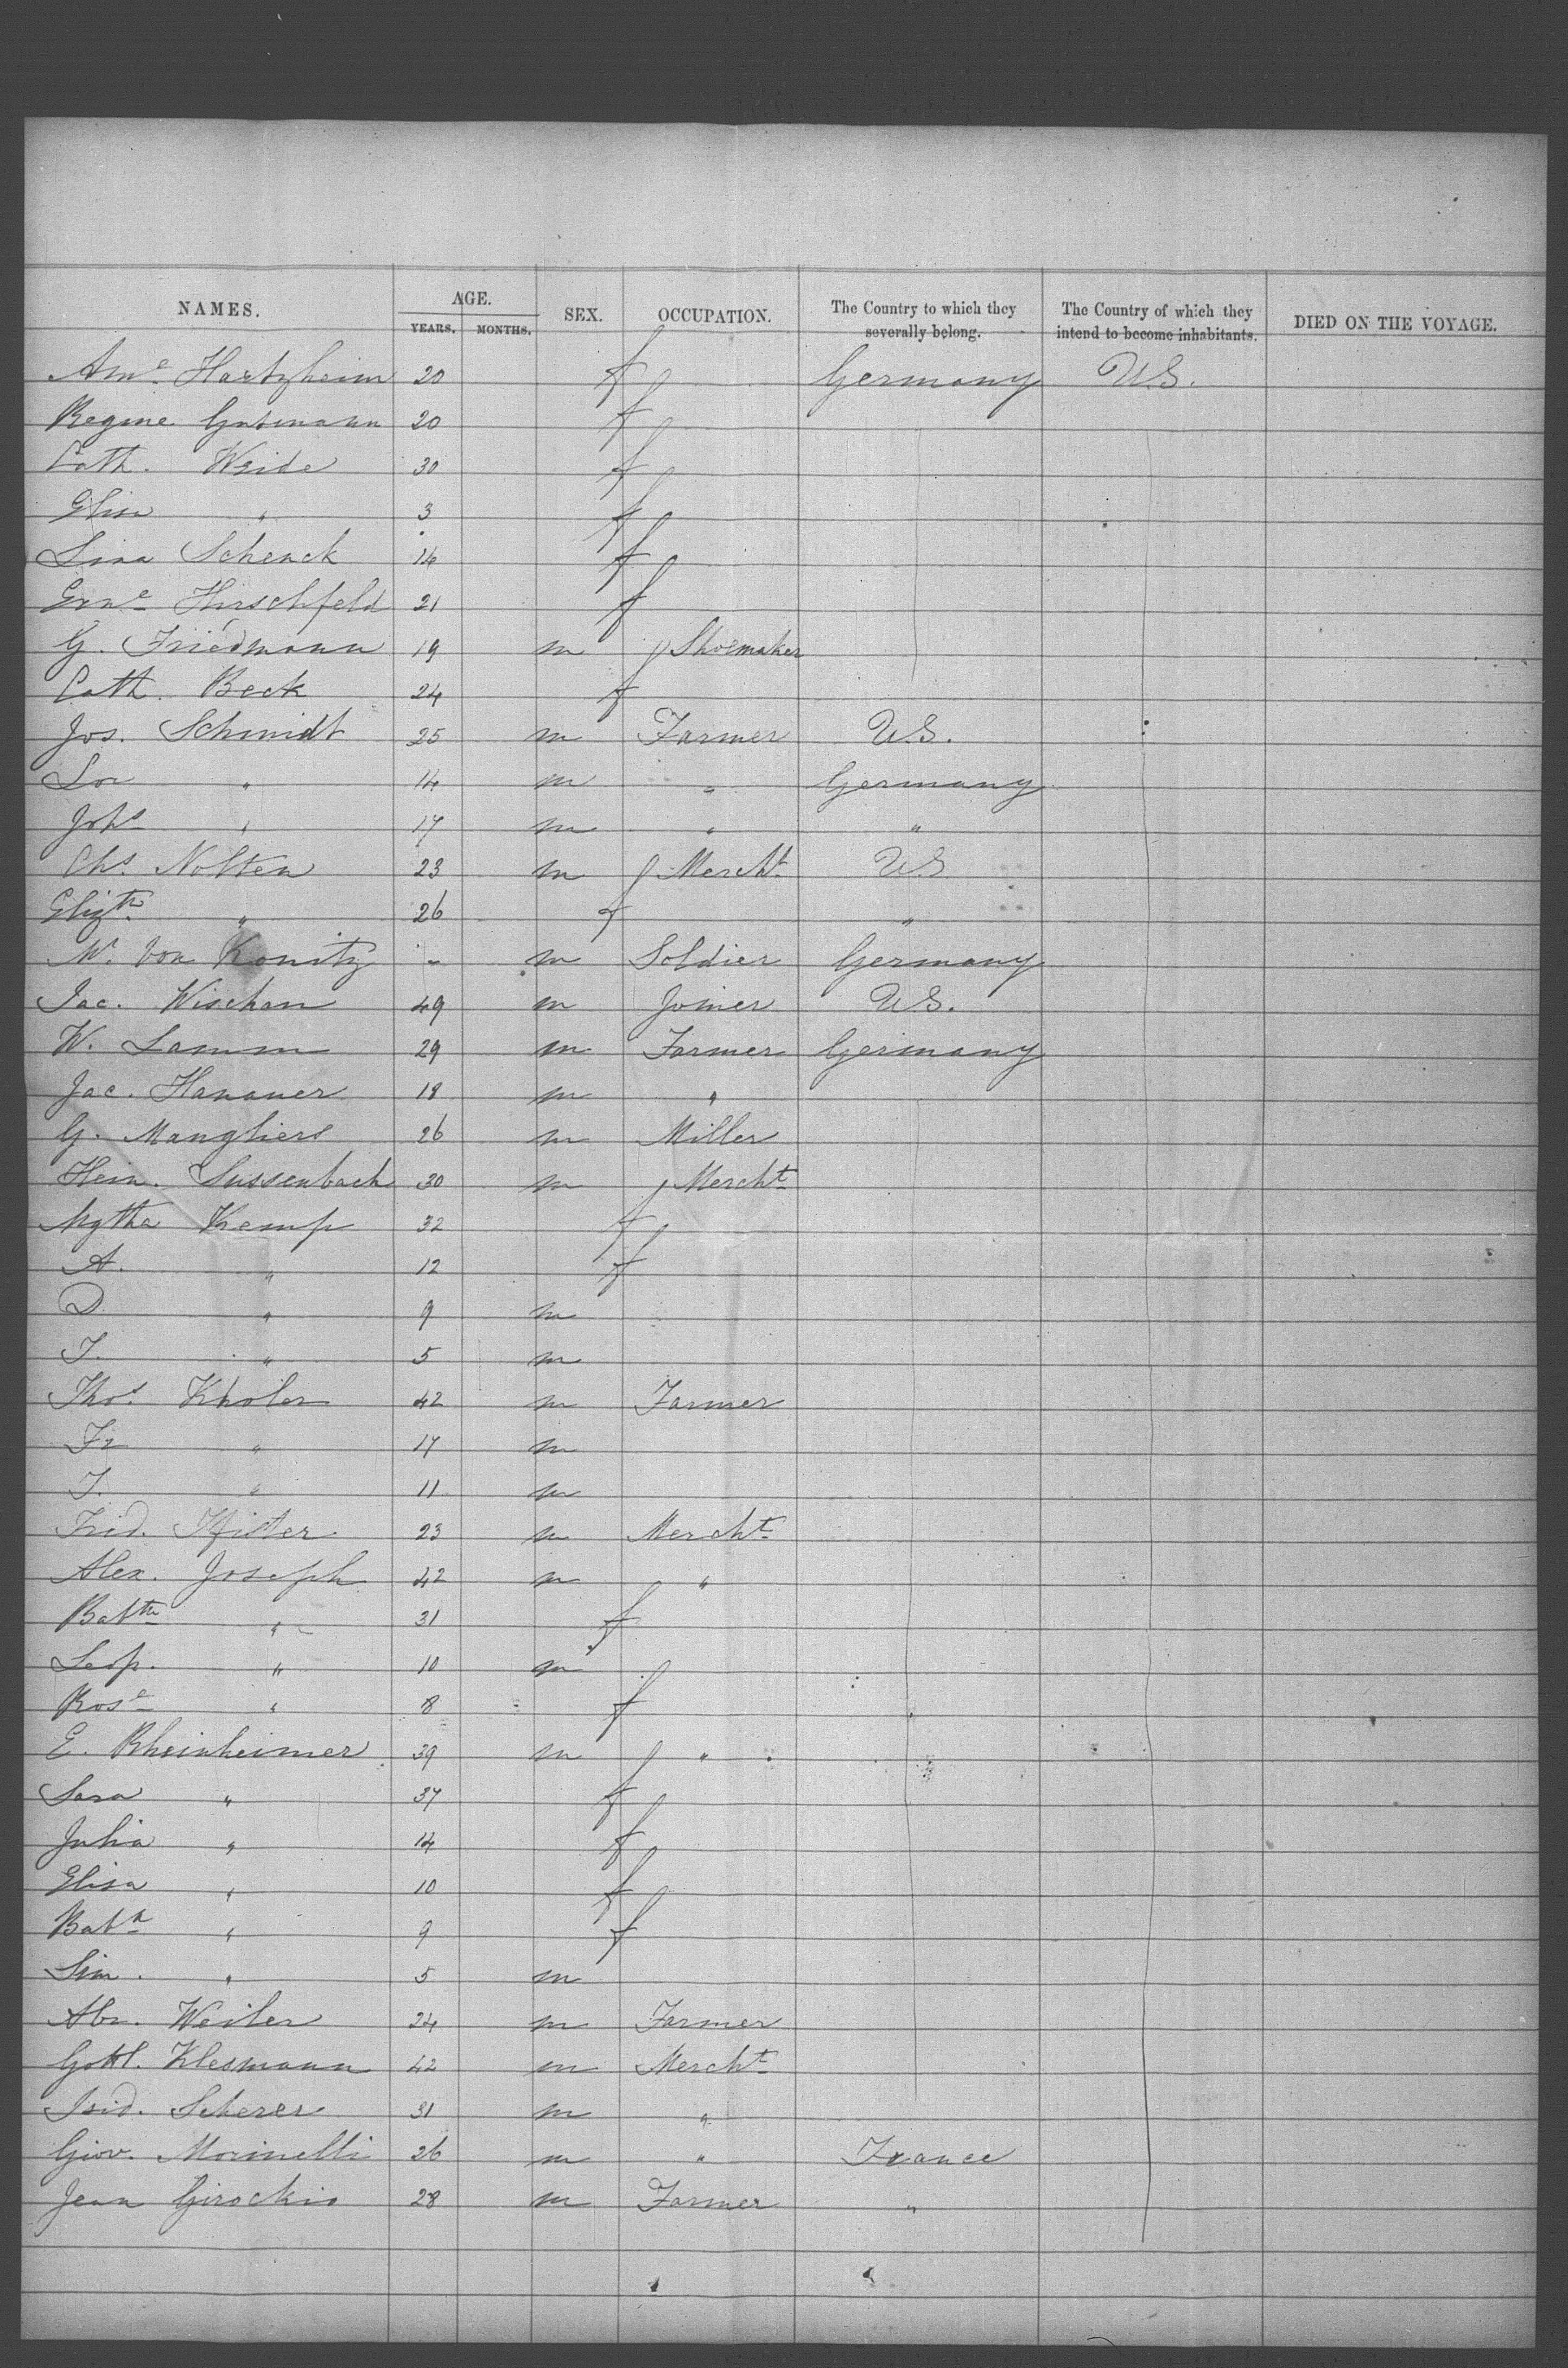 NAMES. AGE. SEX. OCCUPATION. The Country to which they severally belong. The Country of which they intend to become inhabitants. DIED ON THE VOYAGE.
YEARS. MONTHS.
Ame Hartzheim 20 f Germany U.S.
Regine Gutmann 20 f
Cath. Weide 30 f
Elise " 3 f
Lina Schenck 14 f
Erne Hirschfeld 21 f
G. Friedmann 19 m Shoemaker
Cath. Beck 24 f
Jos. Schmidt 25 m Farmer U.S.
Lor " 14 m " Germany
Johs " 17 m " "
Chs. Nolten 23 m Mercht. U.S
Elizth. " 26 f "
W. von Konitz " m Soldier Germany
Jac. Wischan 49 m Joiner U.S.
W. Lamm 29 m Farmer Germany
Jac. Hanauer 18 m "
G. Mangliers 26 m Miller
Hein. Sussenbach 30 m Mercht
Mgtha Kemp 32 f
A. " 12 f
D. " 9 m
J. " 5 m
Thos. Kholer 42 m Farmer
Fr " 17 m
J. " 11 m
Frid. Pfister 23 m Mercht
Alex. Joseph 42 m "
Babtte " 31 f
Leop. " 10 m
Rose " 8 f
E. Rheinheimer 39 m "
Sara " 37 f
Julia " 14 f
Elisa " 10 f
Bab " 9 f
Sim. " 5 m
Abr. Weiler 24 m Farmer
Gottl. Klesmann 42 m Mercht
Isid. Scherer 31 m "
Giov. Morinelli 26 m " France
Jean Girockio 28 m Farmer "